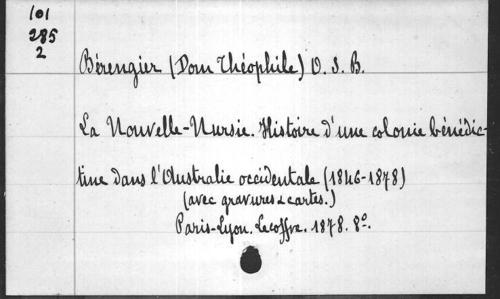 101
285
2
Bérengier (Dom Théophile) O. S. B.
La Nouvelle-Nursie. Histoire d'une colonie bénédic-
tine dans l'Australie occidentale (1846-1878)
(avec gravures & cartes.)
Paris-Lyon. Lecoffre. 1878. 8°.